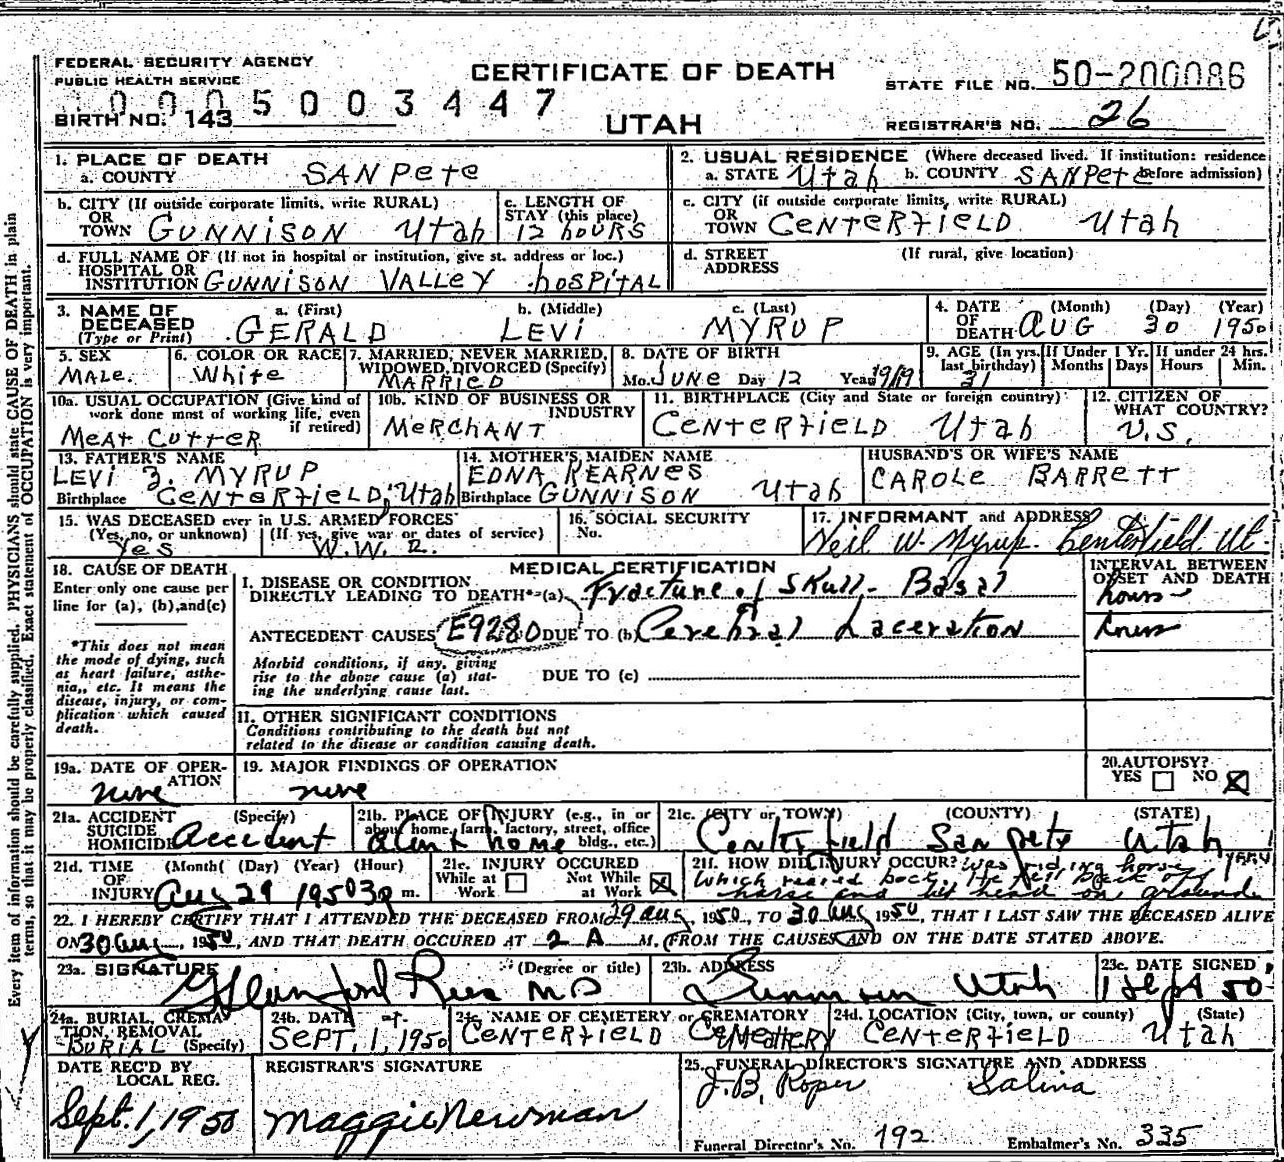 FEDERAL SECURITY AGENCY
PUBLIC HEALTH SERVICE
CERTIFICATE OF DEATH
UTAH
STATE FILE NO. 50-200086
0005003447
BIRTH NO. 143
REGISTRAR'S NO. 26
Every item of information should be carefully supplied. PHYSICIANS should state CAUSE OF DEATH in plain
terms, so that it may be properly classified. Exact statement of OCCUPATION is very important.
1. PLACE OF DEATH
a. COUNTY SANPETE
2. USUAL RESIDENCE (Where deceased lived. If institution: residence
a. STATE Utah b. COUNTY SANPETE before admission)
b. CITY (If outside corporate limits, write RURAL)
OR
TOWN GUNNISON Utah
c. LENGTH OF
STAY (this place)
12 HOURS
c. CITY (if outside corporate limits, write RURAL)
OR
TOWN CENTERFIELD Utah
d. FULL NAME OF (If not in hospital or institution, give st. address or loc.)
HOSPITAL OR
INSTITUTION GUNNISON VALLEY HOSPITAL
d. STREET (If rural, give location)
ADDRESS
3. NAME OF a. (First) b. (Middle) c. (Last)
DECEASED GERALD LEVI MYRUP
(Type or Print)
4. DATE (Month) (Day) (Year)
OF
DEATH AUG 30 1950
5. SEX
MALE.
6. COLOR OR RACE
White
7. MARRIED, NEVER MARRIED,
WIDOWED, DIVORCED (Specify)
MARRIED
8. DATE OF BIRTH
Mo. JUNE Day 12 Year 1919
9. AGE (In yrs. last birthday) 31
If Under 1 Yr. Months Days
If under 24 hrs. Hours Min.
10a. USUAL OCCUPATION (Give kind of
work done most of working life, even
if retired)
MEAT CUTTER
10b. KIND OF BUSINESS OR
INDUSTRY
MERCHANT
11. BIRTHPLACE (City and State or foreign country)
CENTERFIELD Utah
12. CITIZEN OF
WHAT COUNTRY?
U.S.
13. FATHER'S NAME
LEVI Z. MYRUP
Birthplace CENTERFIELD, Utah
14. MOTHER'S MAIDEN NAME
EDNA KEARNES
Birthplace GUNNISON Utah
HUSBAND'S OR WIFE'S NAME
CAROLE BARRETT
15. WAS DECEASED ever in U.S. ARMED FORCES
(Yes, no, or unknown) (If yes, give war or dates of service)
Yes W.W. 2.
16. SOCIAL SECURITY
No.
17. INFORMANT and ADDRESS
Neil W. Myrup. Centerfield Ut.
18. CAUSE OF DEATH
Enter only one cause per
line for (a), (b), and (c)
*This does not mean
the mode of dying, such
as heart failure, asthe-
nia, etc. It means the
disease, injury, or com-
plication which caused
death.
MEDICAL CERTIFICATION
I. DISEASE OR CONDITION
DIRECTLY LEADING TO DEATH*(a) Fracture of Skull - Basal
INTERVAL BETWEEN
ONSET AND DEATH
hours
ANTECEDENT CAUSES E9280 DUE TO (b) Cerebral Laceration
hours
Morbid conditions, if any, giving
rise to the above cause (a) stat-
ing the underlying cause last.
DUE TO (c)
II. OTHER SIGNIFICANT CONDITIONS
Conditions contributing to the death but not
related to the disease or condition causing death.
19a. DATE OF OPER-
ATION
none
19. MAJOR FINDINGS OF OPERATION
none
20. AUTOPSY?
YES NO X
21a. ACCIDENT (Specify)
SUICIDE
HOMICIDE Accident
21b. PLACE OF INJURY (e.g., in or
about home, farm, factory, street, office
bldg., etc.) at home
21c. (CITY or TOWN) (COUNTY) (STATE)
Centerfield Sanpete Utah
21d. TIME (Month) (Day) (Year) (Hour)
OF
INJURY Aug 29 1950 3p m.
21e. INJURY OCCURED
While at Work Not While at Work X
21f. HOW DID INJURY OCCUR? Was riding horse
which reared back. He fell back off
horse and hit head on ground
22. I HEREBY CERTIFY THAT I ATTENDED THE DECEASED FROM 29 Aug, 1950, TO 30 Aug 1950, THAT I LAST SAW THE DECEASED ALIVE
ON 30 Aug, 1950, AND THAT DEATH OCCURED AT 2 A M. FROM THE CAUSES AND ON THE DATE STATED ABOVE.
23a. SIGNATURE (Degree or title)
Rees MD
23b. ADDRESS
Gunnison Utah
23c. DATE SIGNED
1 Sept 50
24a. BURIAL, CREMA-
TION, REMOVAL
BURIAL (Specify)
24b. DATE
SEPT. 1, 1950
24c. NAME OF CEMETERY or CREMATORY
CENTERFIELD CEMETERY
24d. LOCATION (City, town, or county) (State)
CENTERFIELD Utah
DATE REC'D BY
LOCAL REG.
Sept. 1, 1950
REGISTRAR'S SIGNATURE
Maggie Newman
25. FUNERAL DIRECTOR'S SIGNATURE AND ADDRESS
J.B. Roper Salina
Funeral Director's No. 192 Embalmer's No. 335